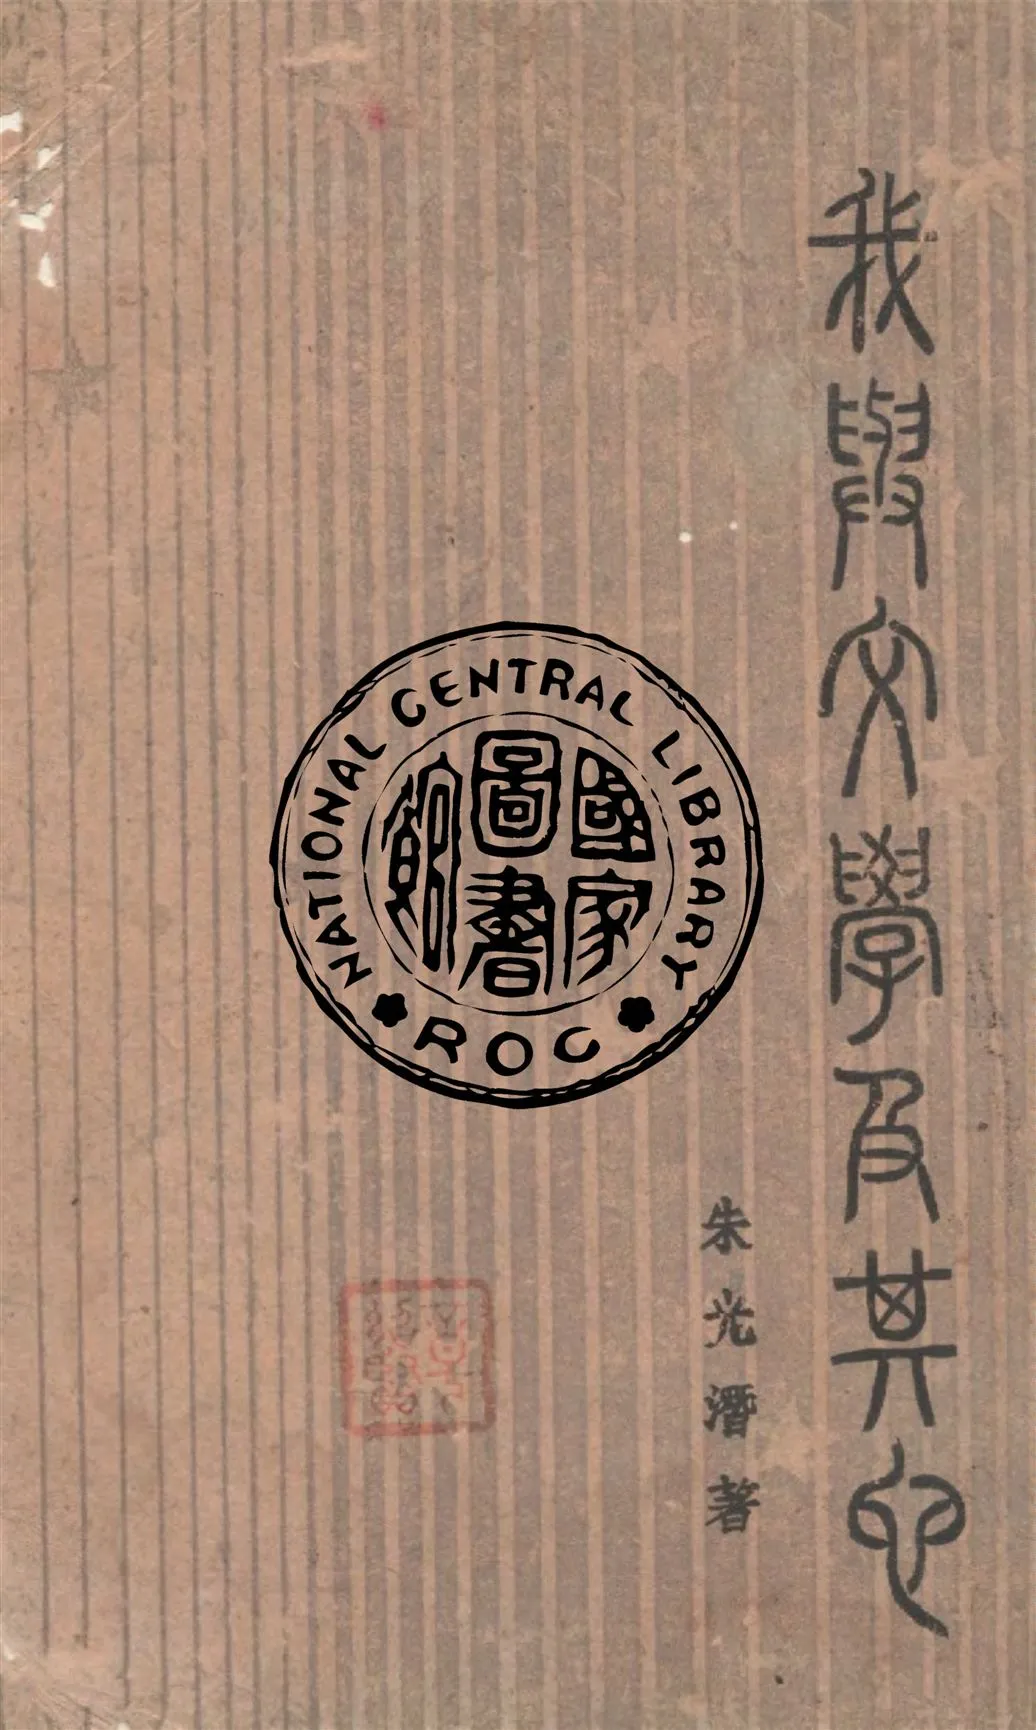 我與文學及其它
朱光潛著
NATIONAL CENTRAL LIBRARY
國家
圖書
館
ROC